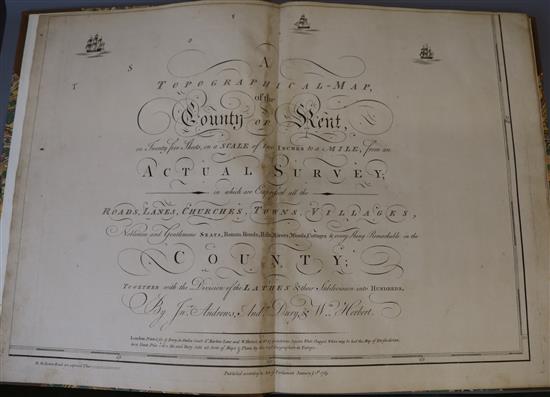 A
TOPOGRAPHICAL-MAP,
of the
County OF Kent,
in Twenty five Sheets, on a SCALE of two INCHES to a MILE, from an
ACTUAL SURVEY;
in which are Expressed all the
ROADS, LANES, CHURCHES, TOWNS, VILLAGES,
Noblemen and Gentlemens SEATS, Roman Roads, Hills, Rivers, Woods, Cottages & every thing Remarkable in the
COUNTY;
TOGETHER with the Division of the LATHES & their Subdivision into HUNDREDS,
By Jno. Andrews, Andw. Dury, & Wm. Herbert.
London, Printed for A. Dury, in Dukes Court St. Martins Lane and W. Herbert, at
Published according to Act of Parliament January 1st 1769